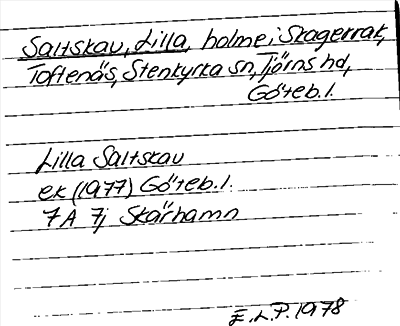 Saltskav, Lilla, holme i Skagerrak,
Toftenäs, Stenkyrka sn, Tjörns hd,
Göteb. l.
Lilla Saltskav
ek (1977) Göteb. l.
7A 7j Skärhamn
E.L.P. 1978